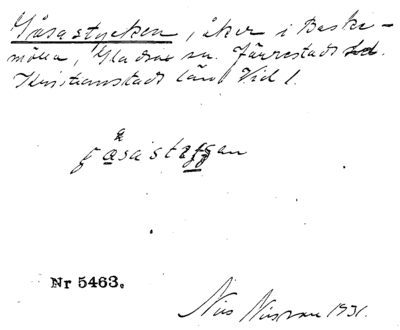 Gåsastycken, åker i Baske-
mölla, Gladsax sn. Järrestads hd.
Kristianstads län. Vid 1.
gåsastyʒʒan
Nr 5463.
Nils Nilsson 1931.